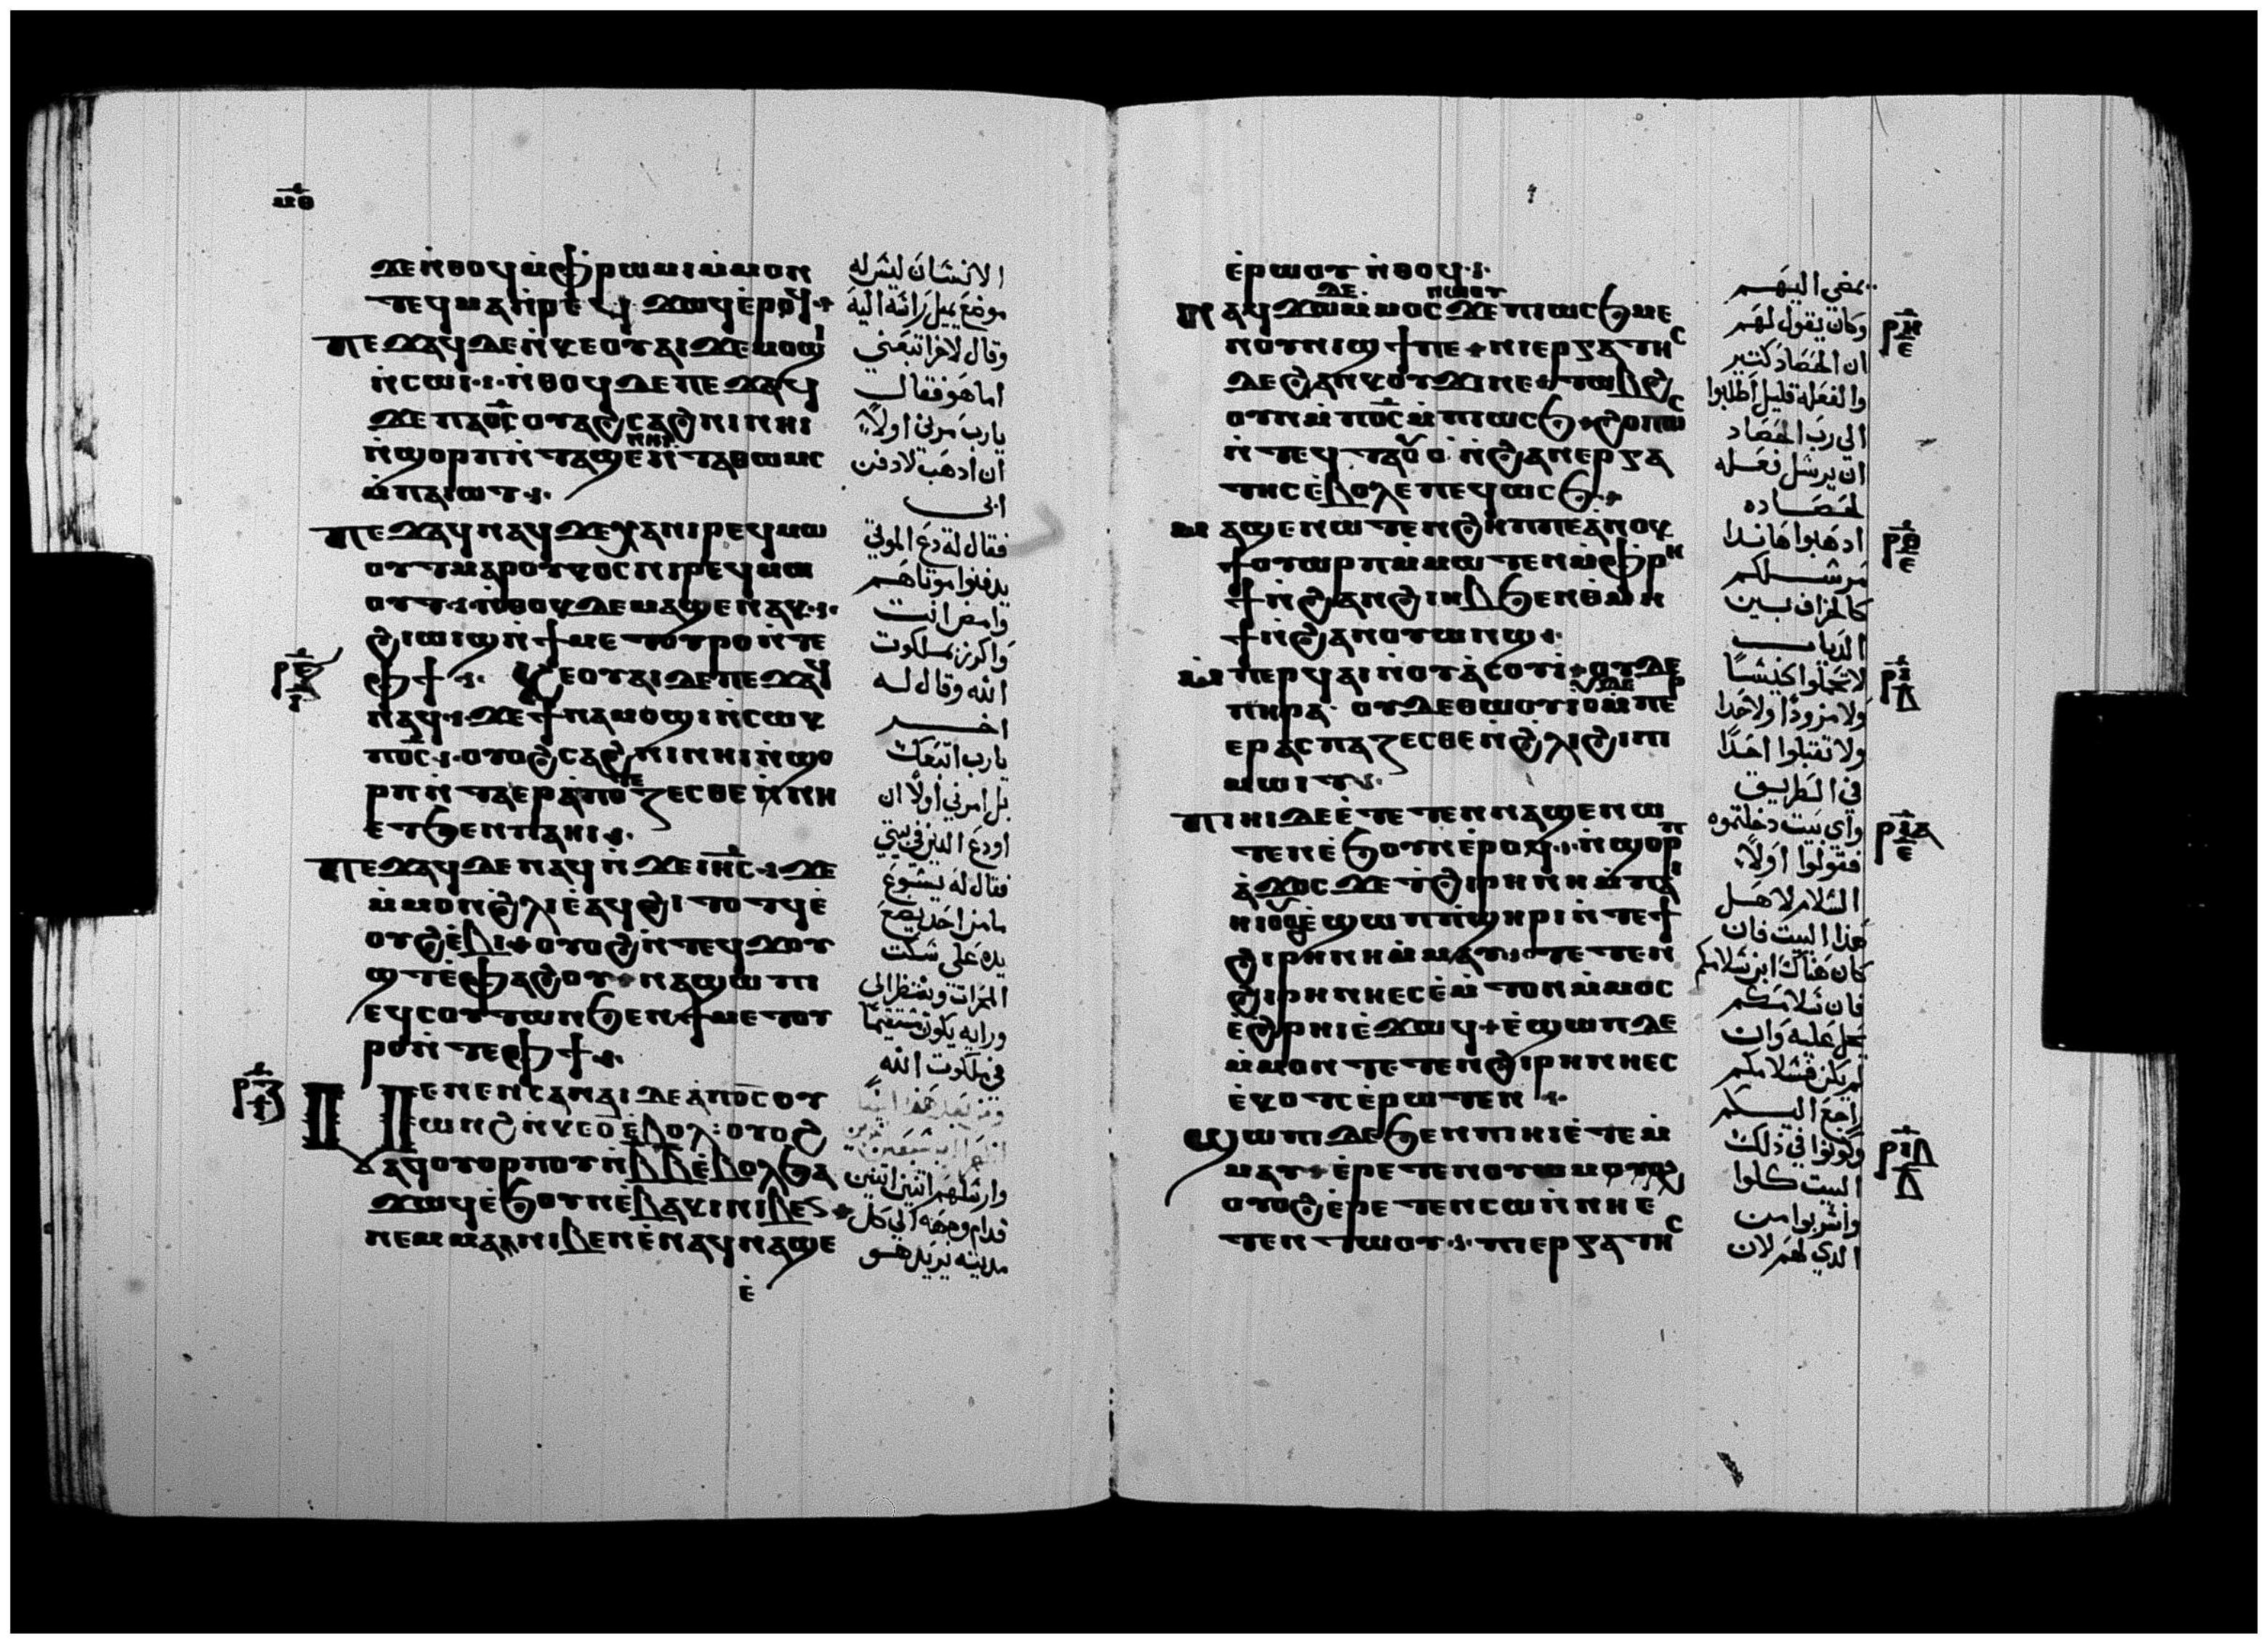 ⲙ̅ⲑ̅
ⲇⲉ ⲛ̀ⲑⲟϥ ⲙ̀ⲫⲣⲱⲙⲓ ⲙ̀ⲙⲟⲛ
ⲧⲉϥ ⲙⲁ ⲛ̀ⲣⲉⲕ ϫⲱϥ ⲉ̀ⲣⲟϥ
ⲡⲉϫⲁϥ ⲇⲉ ⲛ̀ⲕⲉⲟⲩⲁⲓ ϫⲉ ⲙⲟϣⲓ
ⲛ̀ⲥⲱⲓ ⲛ̀ⲑⲟϥ ⲇⲉ ⲡⲉϫⲁϥ
ϫⲉ ⲡⲁϭⲥ ⲟⲩⲁϩⲥⲁϩⲛⲓ ⲛⲏⲓ
ⲛ̀ϣⲟⲣⲡ ⲛ̀ⲧⲁϣⲉⲛⲏⲓ ⲛ̀ⲧⲁⲑⲱⲙⲥ
ⲙ̀ⲡⲁⲓⲱⲧ
ⲡⲉϫⲁϥ ⲛⲁϥ ϫⲉ ⲭⲁ ⲛⲓⲣⲉϥⲙⲱ
ⲟⲩⲧ ⲙⲁⲣⲟⲩⲕⲟⲥ ⲛⲓⲣⲉϥⲙⲱ
ⲟⲩⲧ ⲛ̀ⲑⲟⲕ ⲇⲉ ⲙⲁϣⲉⲛⲁⲕ
ϩⲓⲱⲓϣ ⲛ̀ϯⲙⲉⲧⲟⲩⲣⲟ ⲛ̀ⲧⲉ
ⲫϯ ⲕⲉⲟⲩⲁⲓ ⲇⲉ ⲡⲉϫⲁϥ
ⲛⲁϥ ϫⲉ ϯⲛⲁⲙⲟϣⲓ ⲛ̀ⲥⲱⲕ
ⲡϭⲥ ⲟⲩⲟϩ ⲥⲁϩⲛⲓ ⲛⲏⲓ ⲛ̀ϣⲟ
ⲣⲡ ⲛ̀ⲧⲁⲉⲣⲁ̀ⲡⲟⲧⲉⲍⲉⲥⲑⲉ ⲛ̀ⲛⲏ
ⲉⲧϧⲉⲛ ⲡⲁⲏⲓ
ⲡⲉϫⲁϥ ⲇⲉ ⲛⲁϥ ⲛ̀ϫⲉ ⲓⲏⲥ ϫⲉ
ⲙ̀ⲙⲟⲛ ϩⲗⲓ ⲉ̀ⲁϥϩⲓ ⲧⲟⲧϥ ⲉ̀
ⲟⲩϩⲉ̀ⲃⲓ ⲟⲩⲟϩ ⲛ̀ⲧⲉϥϫⲟⲩ
ϣⲧ ⲉ̀ⲫⲁϩⲟⲩ ⲛⲁϣⲱⲡⲓ
ⲉϥⲥⲟⲩⲧⲱⲛ ϧⲉⲛ ϯⲙⲉⲧⲟⲩ
ⲣⲟ ⲛ̀ⲧⲉ ⲫϯ
ⲡⲉⲛⲉⲛⲥⲁ ⲛⲁⲓ ⲇⲉ ⲁ̀ⲡϭⲥ ⲟⲩ
ⲱⲛϩ ⲛ̀ⲕⲉⲟ̅ ⲉ̀ⲃⲟⲗ ⲟⲩⲟϩ
ⲁϥⲟⲩⲟⲣⲡⲟⲩ ⲛ̀ⲃ̅ⲃ̅ ⲉ̀ⲃⲟⲗϧⲁ
ϫⲱϥ ⲉ̀ϧⲟⲩⲛ ⲉ̀ⲃⲁⲕⲓ ⲛⲓⲃⲉⲛ
ⲛⲉⲙ ⲙⲁⲓ ⲛⲓⲃⲉⲛ ⲉ̀ⲛⲁϥⲛⲁϣⲉ
ⲉ̀
الانسان ليس له
موضع يميل راسه اليه
وقال لاخر اتبعني
اما هو فقال
يارب مرني اولا
ان ادهب لادفن
ابى
فقال له دع الموتى
يدفنوا موتاهم
وامض انت
واكرز بملكوت
الله وقال له
اخر
يارب اتبعك
بل امرني اولا ان
اودع الدين في بيتي
فقال له يسوع
ما من احد يضع
يده على سكت
المحراث وينظر الى
ورايه يكون مستقيما
في ملكوت الله
وارسلهم اثنين اثنين
قدام وجهه الي كل
مدينه يريد هو
ⲉ̀ⲣⲱⲟⲩ ⲛ̀ⲑⲟϥ
ⲛⲁϥϫⲱ ⲇⲉ ⲙ̀ⲙⲟⲥ ⲛⲱⲟⲩ ϫⲉ ⲡⲓⲱⲥϧ ⲙⲉ
ⲛⲟⲩⲛⲓϣϯ ⲡⲉ ⲛⲓⲉⲣⲅⲁⲧⲏⲥ
ⲇⲉ ϩⲁⲛⲕⲟⲩϫⲓ ⲛⲉ ⲧⲱⲃϩ
ⲟⲩⲛ ⲙ̀ⲡϭⲥ ⲙ̀ⲡⲓⲱⲥϧ ϩⲟⲡⲱⲥ
ⲛ̀ⲧⲉϥⲧⲁⲟⲩⲟ̀ ⲛ̀ϩⲁⲛⲉⲣⲅⲁ
ⲧⲏⲥ ⲉ̀ⲃⲟⲗ ⲉ̀ⲡⲉϥⲱⲥϧ
ⲙⲁϣⲉⲛⲱⲧⲉⲛ ϩⲏⲡⲡⲉ ⲁ̀ⲛⲟⲕ
ϯⲟⲩⲱⲣⲡ ⲙ̀ⲙⲱⲧⲉⲛ ⲙ̀ⲫⲣⲏ
ϯ ⲛ̀ϩⲁⲛϩⲓⲏⲃ ϧⲉⲛ ⲑ̀ⲙⲏ
ϯ ⲛ̀ϩⲁⲛⲟⲩⲱⲛϣ
ⲙ̀ⲡⲉⲣϥⲁⲓ ⲛ̀ⲟⲩⲁ̀ⲥⲟⲩⲓ ⲟⲩⲇⲉ
ⲡⲏⲣⲁ ⲟⲩⲇⲉ ⲑⲱⲟⲩⲓ ⲟⲩⲇⲉ ⲙ̀ⲡⲉⲣ
ⲉⲣⲁⲥⲡⲁⲍⲉⲥⲑⲉ ⲛ̀ϩⲗⲓ ϩⲓ ⲡⲓ
ⲙⲱⲓⲧ
ⲡⲓⲏⲓ ⲇⲉ ⲉ̀ⲧⲉⲧⲉⲛⲛⲁϣⲉⲛⲱ
ⲧⲉⲛ ⲉ̀ϧⲟⲩⲛ ⲉ̀ⲣⲟϥ ⲛ̀ϣⲟⲣⲡ
ⲁ̀ϫⲟⲥ ϫⲉ ⲧ̀ϩⲓⲣⲏⲛⲏ ⲙ̀ⲡⲁⲓ
ⲏⲓ ⲟⲩⲟϩ ⲉ̀ϣⲱⲡ ⲡ̀ϣⲏⲣⲓ ⲛ̀ⲧⲉ ϯ
ϩⲓⲣⲏⲛⲏ ⲙ̀ⲙⲁⲩ ⲧⲉⲧⲉⲛ
ϩⲓⲣⲏⲛⲏ ⲉⲥⲉ̀ⲙ̀ⲧⲟⲛ ⲙ̀ⲙⲟⲥ
ⲉ̀ϩⲣⲏⲓ ⲉ̀ϫⲱϥ ⲉ̀ϣⲱⲡ ⲇⲉ
ⲙ̀ⲙⲟⲛ ⲧⲉⲧⲉⲛϩⲓⲣⲏⲛⲏ ⲉⲥ
ⲉ̀ⲕⲟⲧⲥ ⲉ̀ⲣⲱⲧⲉⲛ
ϣⲱⲡⲓ ⲇⲉ ϧⲉⲛ ⲡⲓⲏⲓ ⲉ̀ⲧⲉⲙ̀
ⲙⲁⲩ ⲉ̀ⲣⲉⲧⲉⲛⲟⲩⲱⲙ
ⲟⲩⲟϩ ⲉ̀ⲣⲉⲧⲉⲛⲥⲱ ⲛ̀ⲛⲏ ⲉ
ⲧⲉⲛⲧⲱⲟⲩ ⲡⲓⲉⲣⲅⲁⲧⲏⲥ
يمضي اليهم
وكان يقول لهم
ان الحصاد كتير
والفعله قليل اطلبوا
الي رب الحصاد
ان يرسل فعله
لحصاده
ادهبوا هاندا
مرسلكم
كالخراف بين
الدياب
لا تحملوا كيسا
ولا مزودا ولا حدا
ولا تقبلوا احدا
في الطريق
واي بيت دخلتموه
فقولوا اولا
السلام لاهل
هذا البيت فان
كان هناك ابن سلامكم
فان سلامكم
يحل عليه وان
لم يكن فسلامكم
راجع اليكم
وكونوا في ذلك
البيت كلوا
واشربوا من
الدي لهم لان
ⲣⲏ
ⲉ
ⲣⲑ
ⲉ
ⲣⲓ
ⲇ
ⲣⲓⲁ
ⲉ